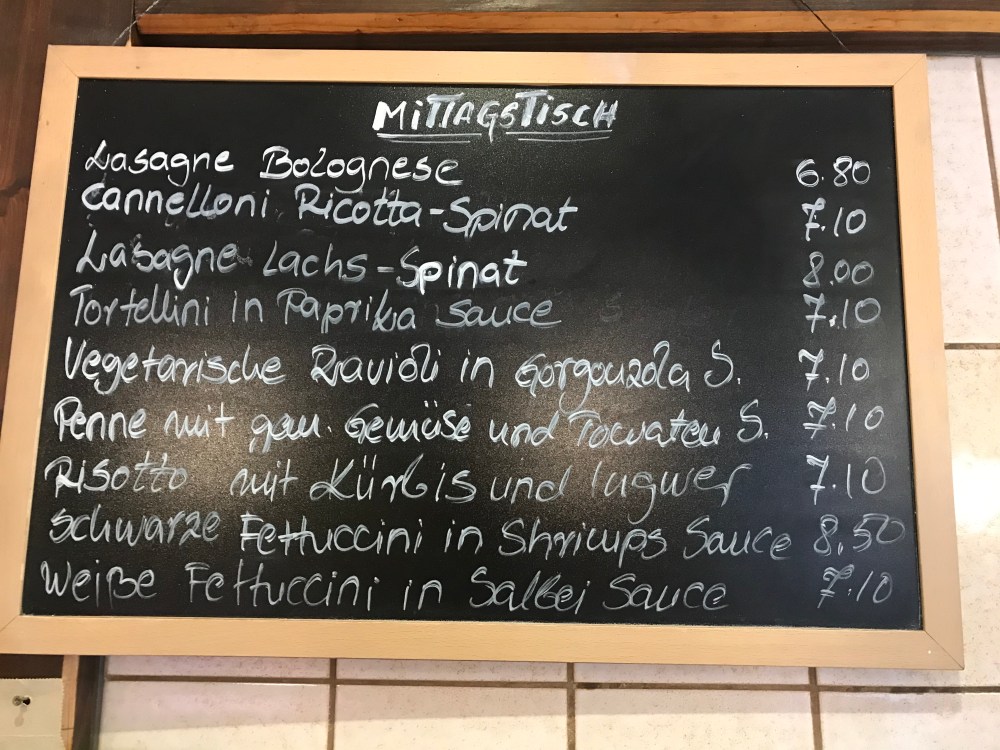 MITTAGSTISCH
Lasagne Bolognese 6.80
Cannelloni Ricotta-Spinat 7.10
Lasagne Lachs-Spinat 8.00
Tortellini in Paprika Sauce 7.10
Vegetarische Ravioli in Gorgonzola S. 7.10
Penne mit gem. Gemüse und Tomaten S. 7.10
Risotto mit Kürbis und Ingwer 7.10
Schwarze Fettuccini in Shrimps Sauce 8,50
Weiße Fettuccini in Salbei Sauce 7.10